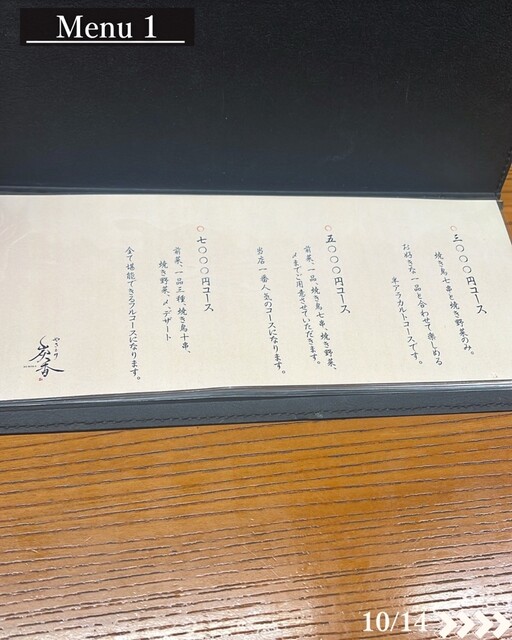 Menu 1
三〇〇〇円コース
焼き鳥七串と焼き野菜のみ。
お好きな一品と合わせて楽しめる
半アラカルトコースです。
五〇〇〇円コース
前菜、一品、焼き鳥七串、焼き野菜、
〆までご用意させていただきます。
当店一番人気のコースになります。
七〇〇〇円コース
前菜、一品三種、焼き鳥十串、
焼き野菜、〆、デザート
全て堪能できるフルコースになります。
やきとり
炭香
10/14